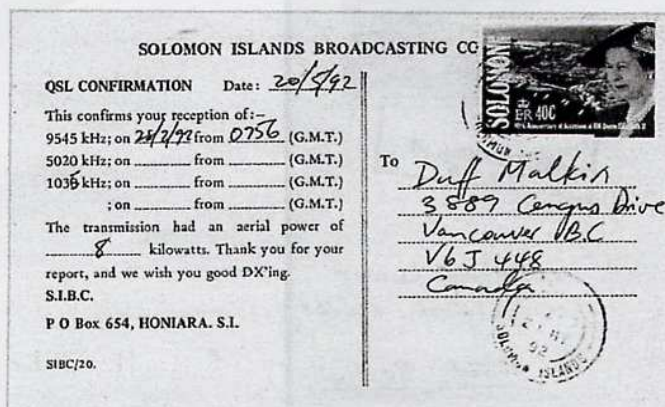 SOLOMON ISLANDS BROADCASTING CO
QSL CONFIRMATION Date: 20/5/92
This confirms your reception of:-
9545 kHz; on 28/2/92 from 0756 (G.M.T.)
5020 kHz; on from (G.M.T.)
1035 kHz; on from (G.M.T.)
; on from (G.M.T.)
The transmission had an aerial power of
8 kilowatts. Thank you for your
report, and we wish you good DX'ing.
S.I.B.C.
P O Box 654, HONIARA. S.I.
SIBC/20.
SOLOMON
E R 40C
40th Anniversary of Accession of HM Queen Elizabeth II
To Duff Malkin
3889 Drive
Vancouver B.C
V6J 4A8
Canada
92
SOLOMON ISLANDS